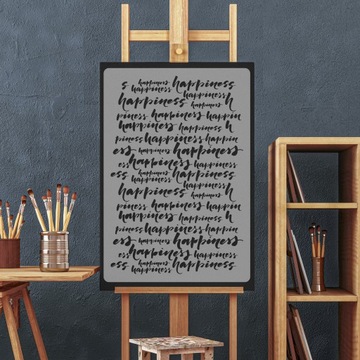 s happiness happiness
happiness
happiness
happiness happiness h
piness happiness happin
happiness happiness h
piness happiness happin
ess happiness happiness
ess happiness happiness
ess happiness happiness
happiness
happiness happiness h
piness happiness happin
happiness happiness h
piness happiness happiness
ess happiness happiness
ess happiness happiness
ess happiness happiness
happiness